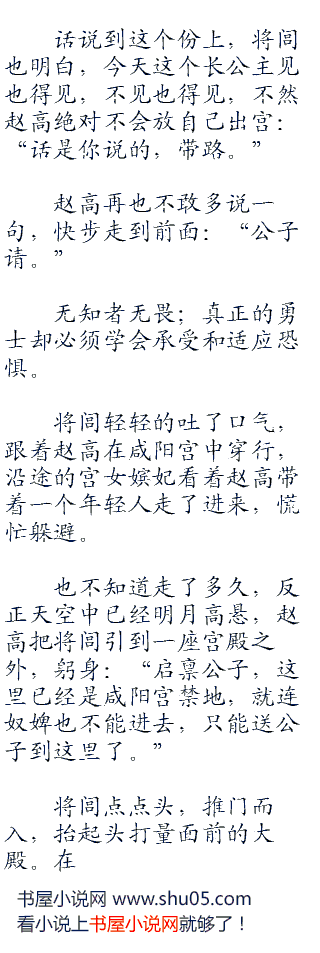 话说到这个份上，将闾
也明白，今天这个长公主见
也得见，不见也得见，不然
赵高绝对不会放自己出宫：
“话是你说的，带路。”
赵高再也不敢多说一
句，快步走到前面：“公子
请。”
无知者无畏；真正的勇
士却必须学会承受和适应恐
惧。
将闾轻轻的吐了口气，
跟着赵高在咸阳宫中穿行，
沿途的宫女嫔妃看着赵高带
着一个年轻人走了进来，慌
忙躲避。
也不知道走了多久，反
正天空中已经明月高悬，赵
高把将闾引到一座宫殿之
外，躬身：“启禀公子，这
里已经是咸阳宫禁地，就连
奴婢也不能进去，只能送公
子到这里了。”
将闾点点头，推门而
入，抬起头打量面前的大
殿。在
书屋小说网 www.shu05.com
看小说上书屋小说网就够了！